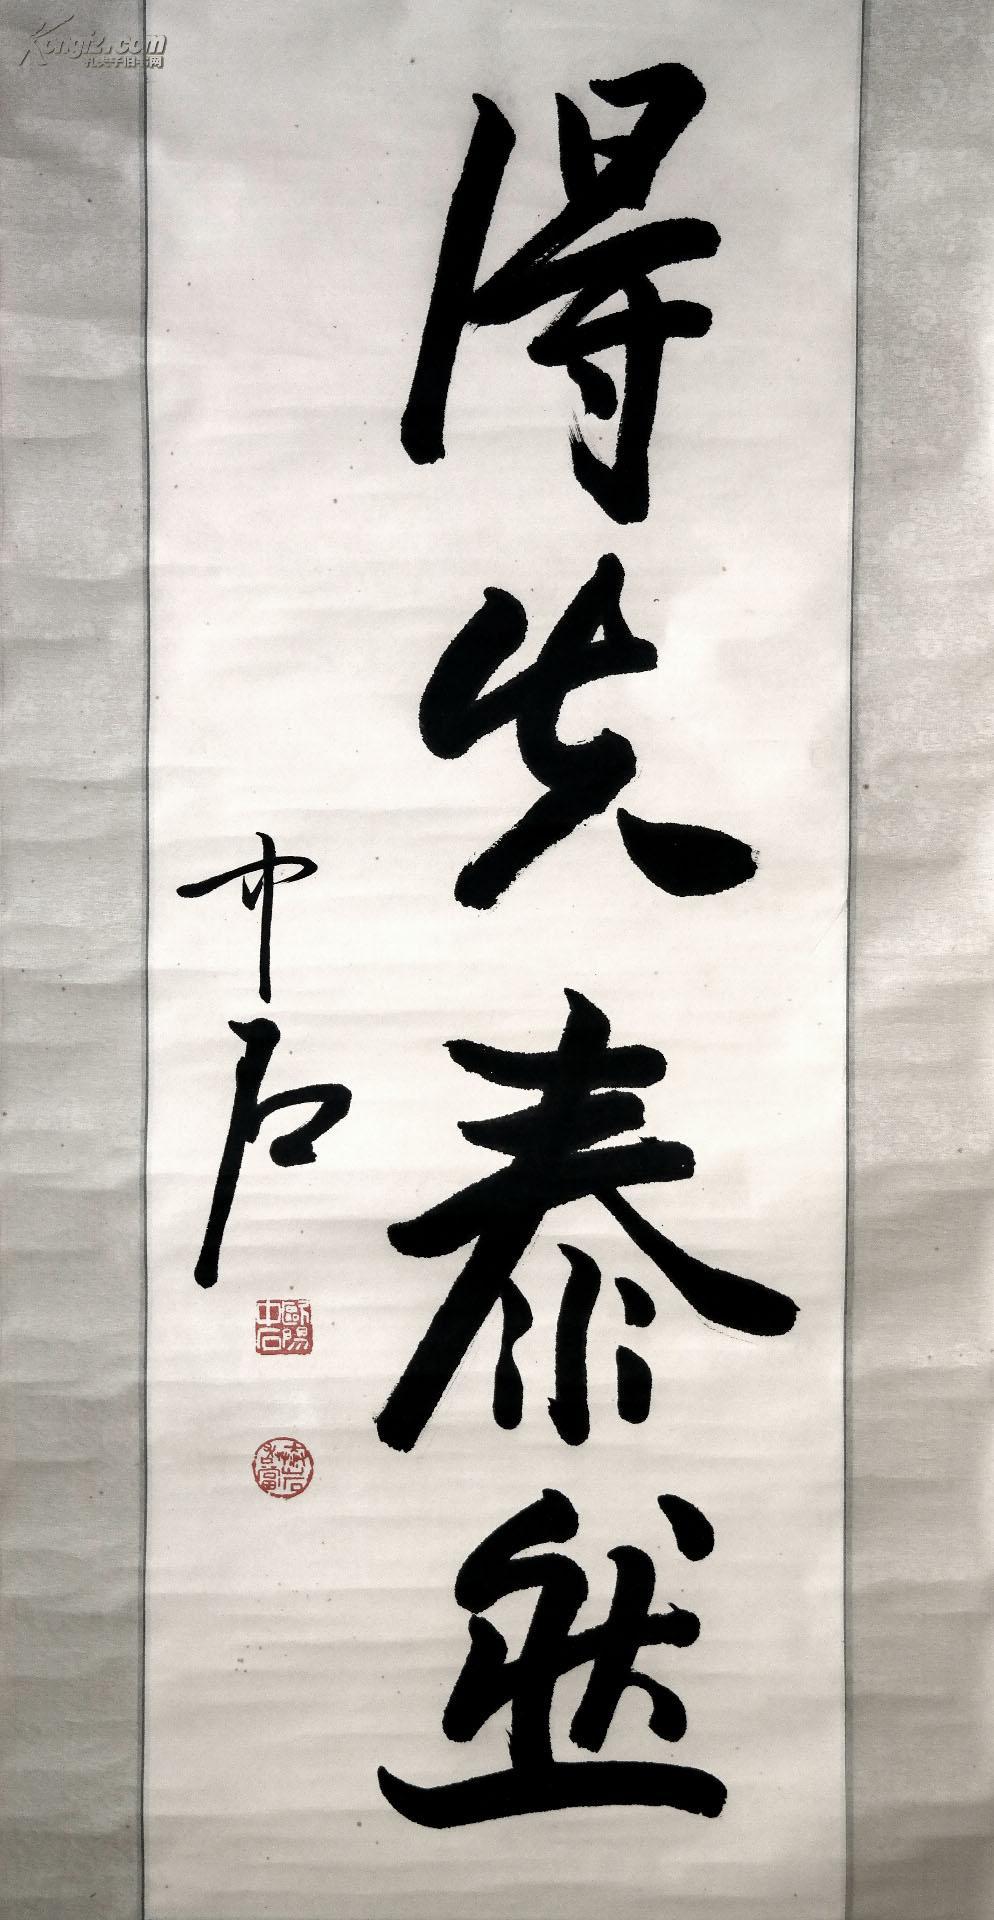 得失泰然
中石
歐陽中石
Kongfz.com
孔夫子旧书网